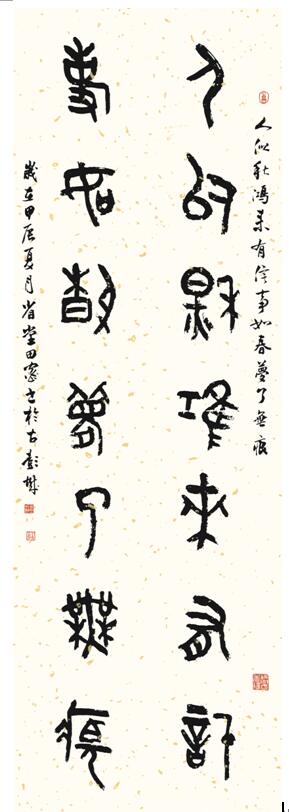 人似秋鴻来有信事如春夢了無痕
人似秋鴻來有信
事如春夢了無痕
歲在甲辰夏月省堂田寬書於古彭城